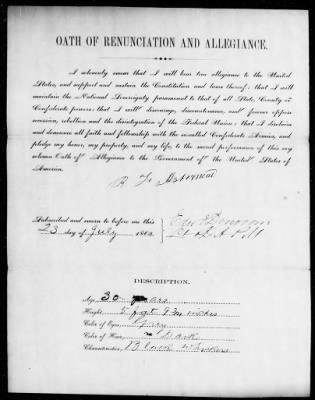 OATH OF RENUNCIATION AND ALLEGIANCE.
I solemnly swear that I will bear true allegiance to the United
States, and support and sustain the Constitution and laws thereof; that I will
maintain the National Sovereignty paramount to that of all State, County or
Confederate powers; that I will discourage, discountenance, and forever oppose
secession, rebellion and the disintegration of the Federal Union; that I disclaim
and denounce all faith and fellowship with the so-called Confederate Armies, and
pledge my honor, my property, and my life, to the sacred performance of this my
solemn Oath of Allegiance to the Government of the United States of
America.
Subscribed and sworn to before me this
23 day of July 186
DESCRIPTION.
Age, 30 years
Height, 5 feet 9 inches
Color of Eyes, Gray
Color of Hair, Dark
Characteristics, Black Whiskers